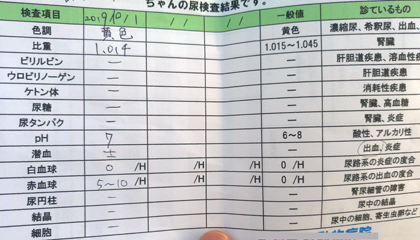 ちゃんの尿検査結果です。
検査項目 2019/10/1 / / / / 一般値 診ているもの
色調 黄色 黄色 濃縮尿、希釈尿、出血、
比重 1.014 1.015~1.045 腎臓
ビリルビン — — 肝胆道疾患、溶血性
ウロビリノーゲン — — 肝胆道疾患
ケトン体 — — 消耗性疾患
尿糖 — — 腎臓、高血糖
尿タンパク — — 腎臓、炎症
pH 7 6~8 酸性、アルカリ性
潜血 ± — 出血、炎症
白血球 0 /H /H /H 0 /H 尿路系の炎症の度合
赤血球 5~10 /H /H /H 0 /H 尿路系の出血の度合
尿円柱 — — 腎尿細管の障害
結晶 — — 尿中の結晶
細胞 — — 尿中の細胞、寄生虫卵など
動物病院